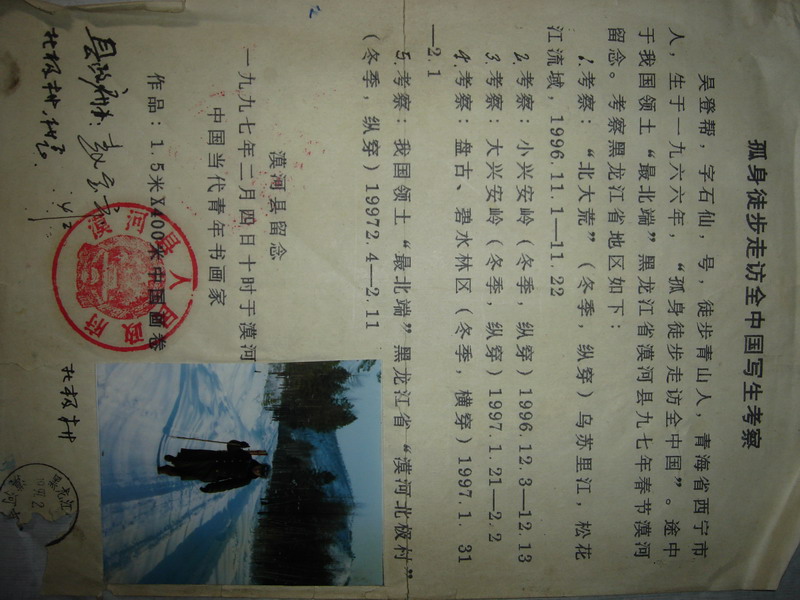 孤身徒步走访全中国写生考察
吴登帮，字石仙，号，徒步青山人，青海省西宁市
人，生于一九六六年，“孤身徒步走访全中国”。途中
于我国领土“最北端”黑龙江省漠河县九七年春节漠河
留念。考察黑龙江省地区如下：
1.考察：“北大荒”（冬季，纵穿）乌苏里江，松花
江流域，1996.11.1—11.22
2.考察：小兴安岭（冬季，纵穿）1996.12.3—12.13
3.考察：大兴安岭（冬季，纵穿）1997.1.21—2.2
4.考察：盘古、碧水林区（冬季，横穿）1997.1.31
—2.1
5.考察：我国领土“最北端”黑龙江省“漠河北极村”
（冬季，纵穿）19972.4—2.11
漠河县留念
一九九七年二月四日十时于漠河
中国当代青年书画家
作品：1.5米X400米中国画卷
漠河县人民政府
北极村
黑龙江